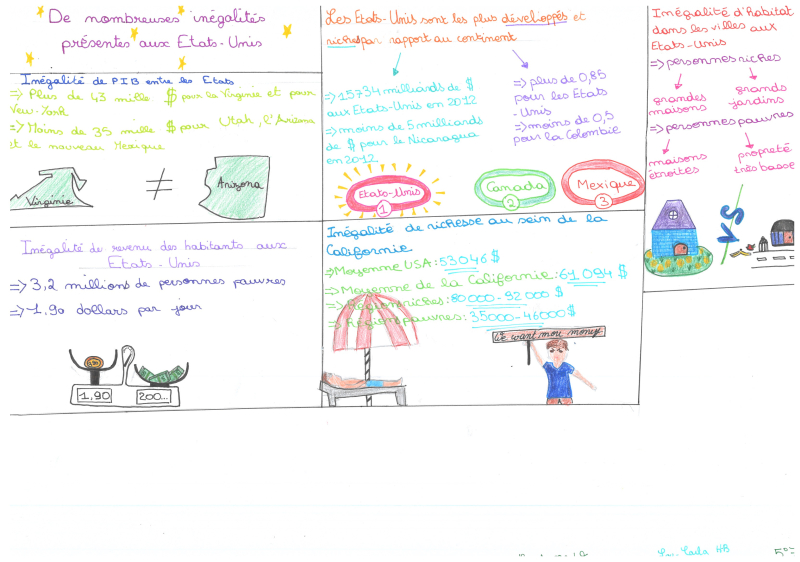 De nombreuses inégalités
présentes aux Etats-Unis
Inégalité de PIB entre les Etats
=> Plus de 43 mille $ pour la Virginie et pour
New-York
=> Moins de 35 mille $ pour Utah, l'Arizona
et le nouveau Mexique
Virginie
≠
Arizona
Les Etats-Unis sont les plus développés et
riches par rapport au continent
=> 15734 milliards de $
aux Etats-Unis en 2012
=> moins de 5 milliards
de $ pour le Nicaragua
en 2012
=> plus de 0,85
pour les Etats
-Unis
=> moins de 0,5
pour la Colombie
Etats-Unis
1
Canada
2
Mexique
3
Inégalité d'habitat
dans les villes aux
Etats-Unis
=> personnes riches
grandes
maisons
grands
jardins
=> personnes pauvres
maisons
étroites
propreté
très basse
VS
Inégalité de revenu des habitants aux
Etats-Unis
=> 3,2 millions de personnes pauvres
=> 1,90 dollars par jour
1,90
200...
Inégalité de richesse au sein de la
Californie
=> Moyenne USA: 53046 $
=> Moyenne de la Californie: 61 094 $
=> Régions riches: 80 000 - 92 000 $
=> Régions pauvres: 35000 - 46000 $
We want more money